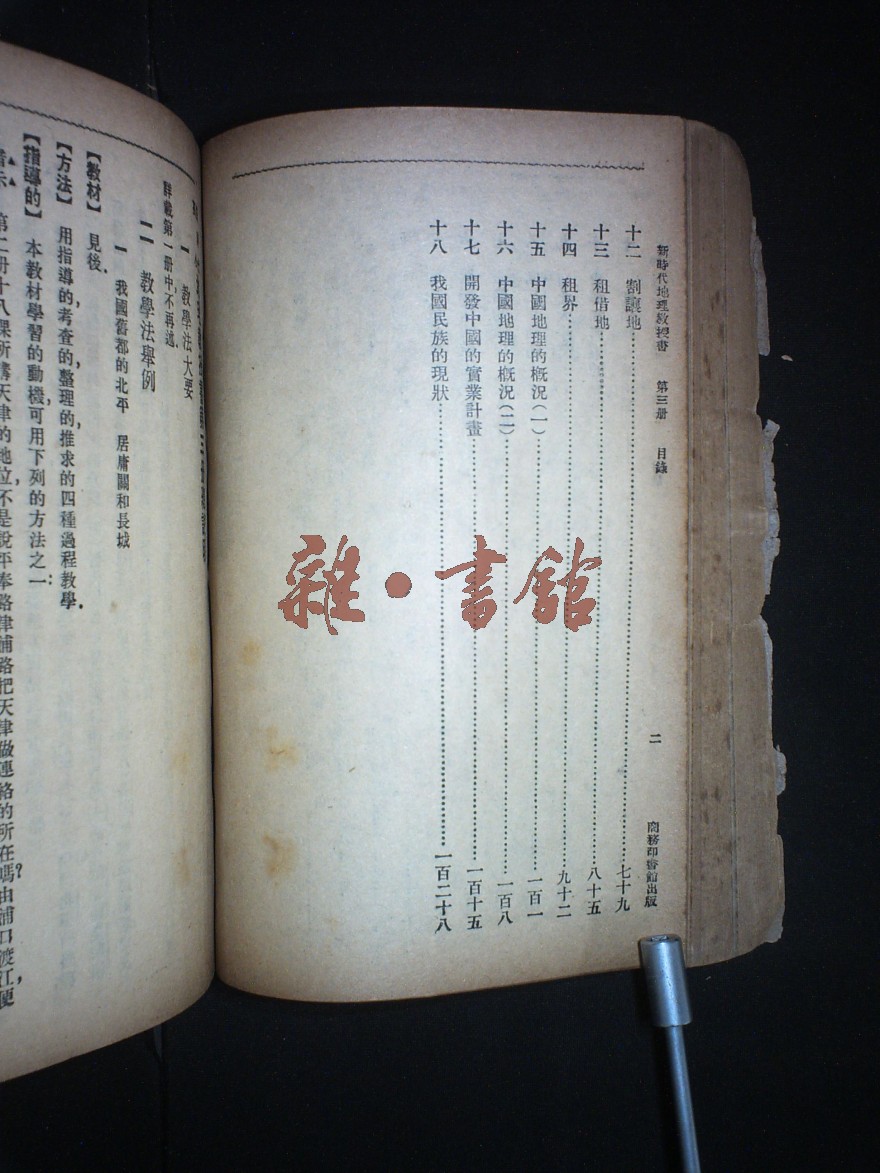 新時代地理教授書　第三册　目錄　二　商務印書館出版
十二　割讓地……七十九
十三　租借地……八十五
十四　租界……九十二
十五　中國地理的概況(一)……一百一
十六　中國地理的概況(二)……一百八
十七　開發中國的實業計畫……一百十五
十八　我國民族的現狀……一百二十八
雜·書館
一　教學法大要
詳載第一册中,不再述.
二　教學法舉例
一　我國舊都的北平　居庸關和長城
【教材】見後.
【方法】用指導的,考查的,整理的,推求的四種過程教學.
【指導的】本教材學習的動機,可用下列的方法之一:
第二册十八課所講天津的地位,不是說平奉路津浦路把天津做連絡的所在嗎?由浦口渡江,便